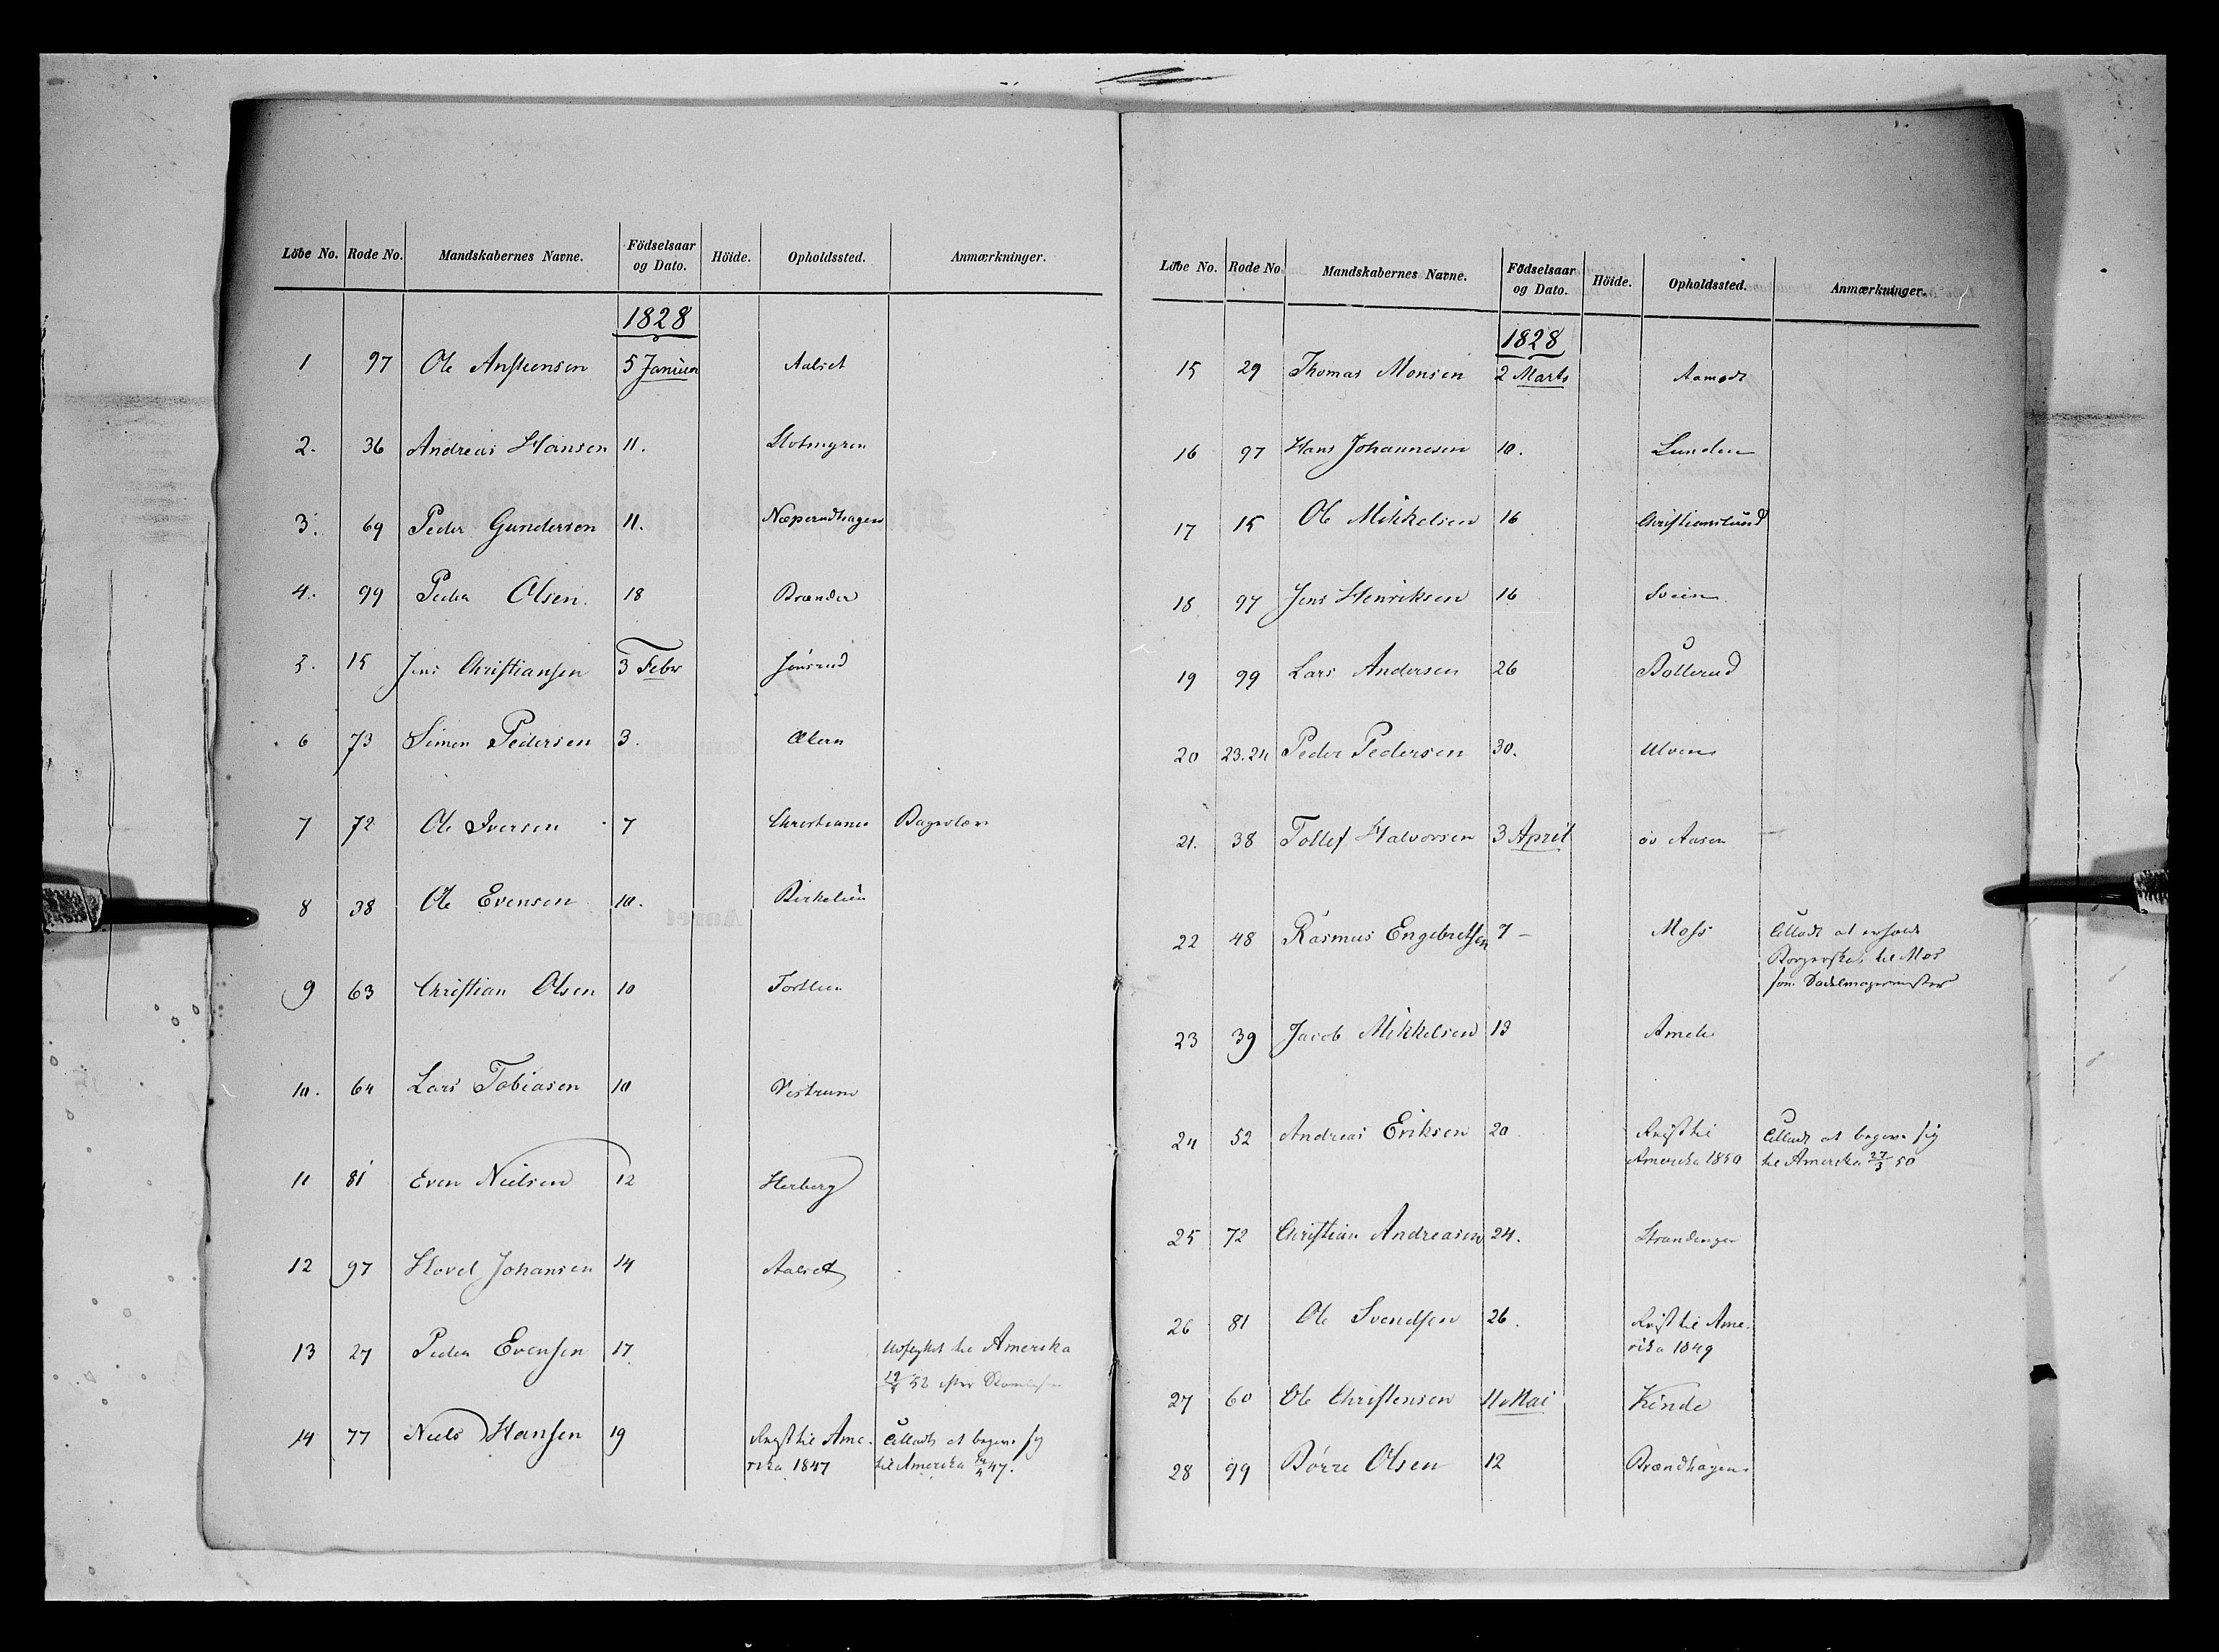 Löbe No. Rode No. Mandskabernes Navne. Födselsaar og Dato. Höide. Opholdssted. Anmærkninger.
1828
1 97 Ole Anstensen 5 Januar Aalset
2. 36 Andreas Hansen 11. Slotmyren
3. 69 Peder Gundersen 11. Næperudhagen
4. 99 Peder Olsen 18 Brænden
5. 15 Jens Christiansen 3 Febr Jonsrud
6 73 Simen Pedersen 3.
7 72 Ole Iversen 7 Christiania
8 38 Ole Evensen 10. Birkelien
9 63 Christian Olsen 10
10. 64 Lars Tobiasen 10 Vestrum
11 81 Even Nielsen 12 Herberg
12 97 Hovel Johansen 14 Aalset
13 27 Peder Evensen 17 Udflyttet til Amerika
52 efter
14 77 Niels Hansen 19 Reist til Ame- Tilladt at begive sig
rika 1847 til Amerika 47.
Löbe No. Rode No Mandskabernes Navne. Födselsaar og Dato. Höide. Opholdssted. Anmærkninger.
1828
15 29 Thomas Monsen 2 Marts Aamodt
16 97 Hans Johannesen 10. Lunden
17 15 Ole Mikkelsen 16 Christianslund
18 97 Jens Henriksen 16 Sveen
19 99 Lars Andersen 26 Bollerud
20 23.24 Peder Pedersen 30. Ulven
21. 38 Tollef Halvorsen 3 April öv Aasen
22 48 Rasmus Engebretsen 7 – Moss Tilladt at erholde
Borgerskab til Mos
som Sadelmagermester
23 39 Jacob Mikkelsen 13
24 52 Andreas Eriksen 20 Reist til Tilladt at begive sig
Amerika 1850 til Amerika 27/3 50
25 72 Christian Andreasen 24. Strandengen
26 81 Ole Svendsen 26. Reist til Ame-
rika 1849
27 60 Ole Christensen 11 Mai Kinde
28 99 Börre Olsen 12 Brændhagen